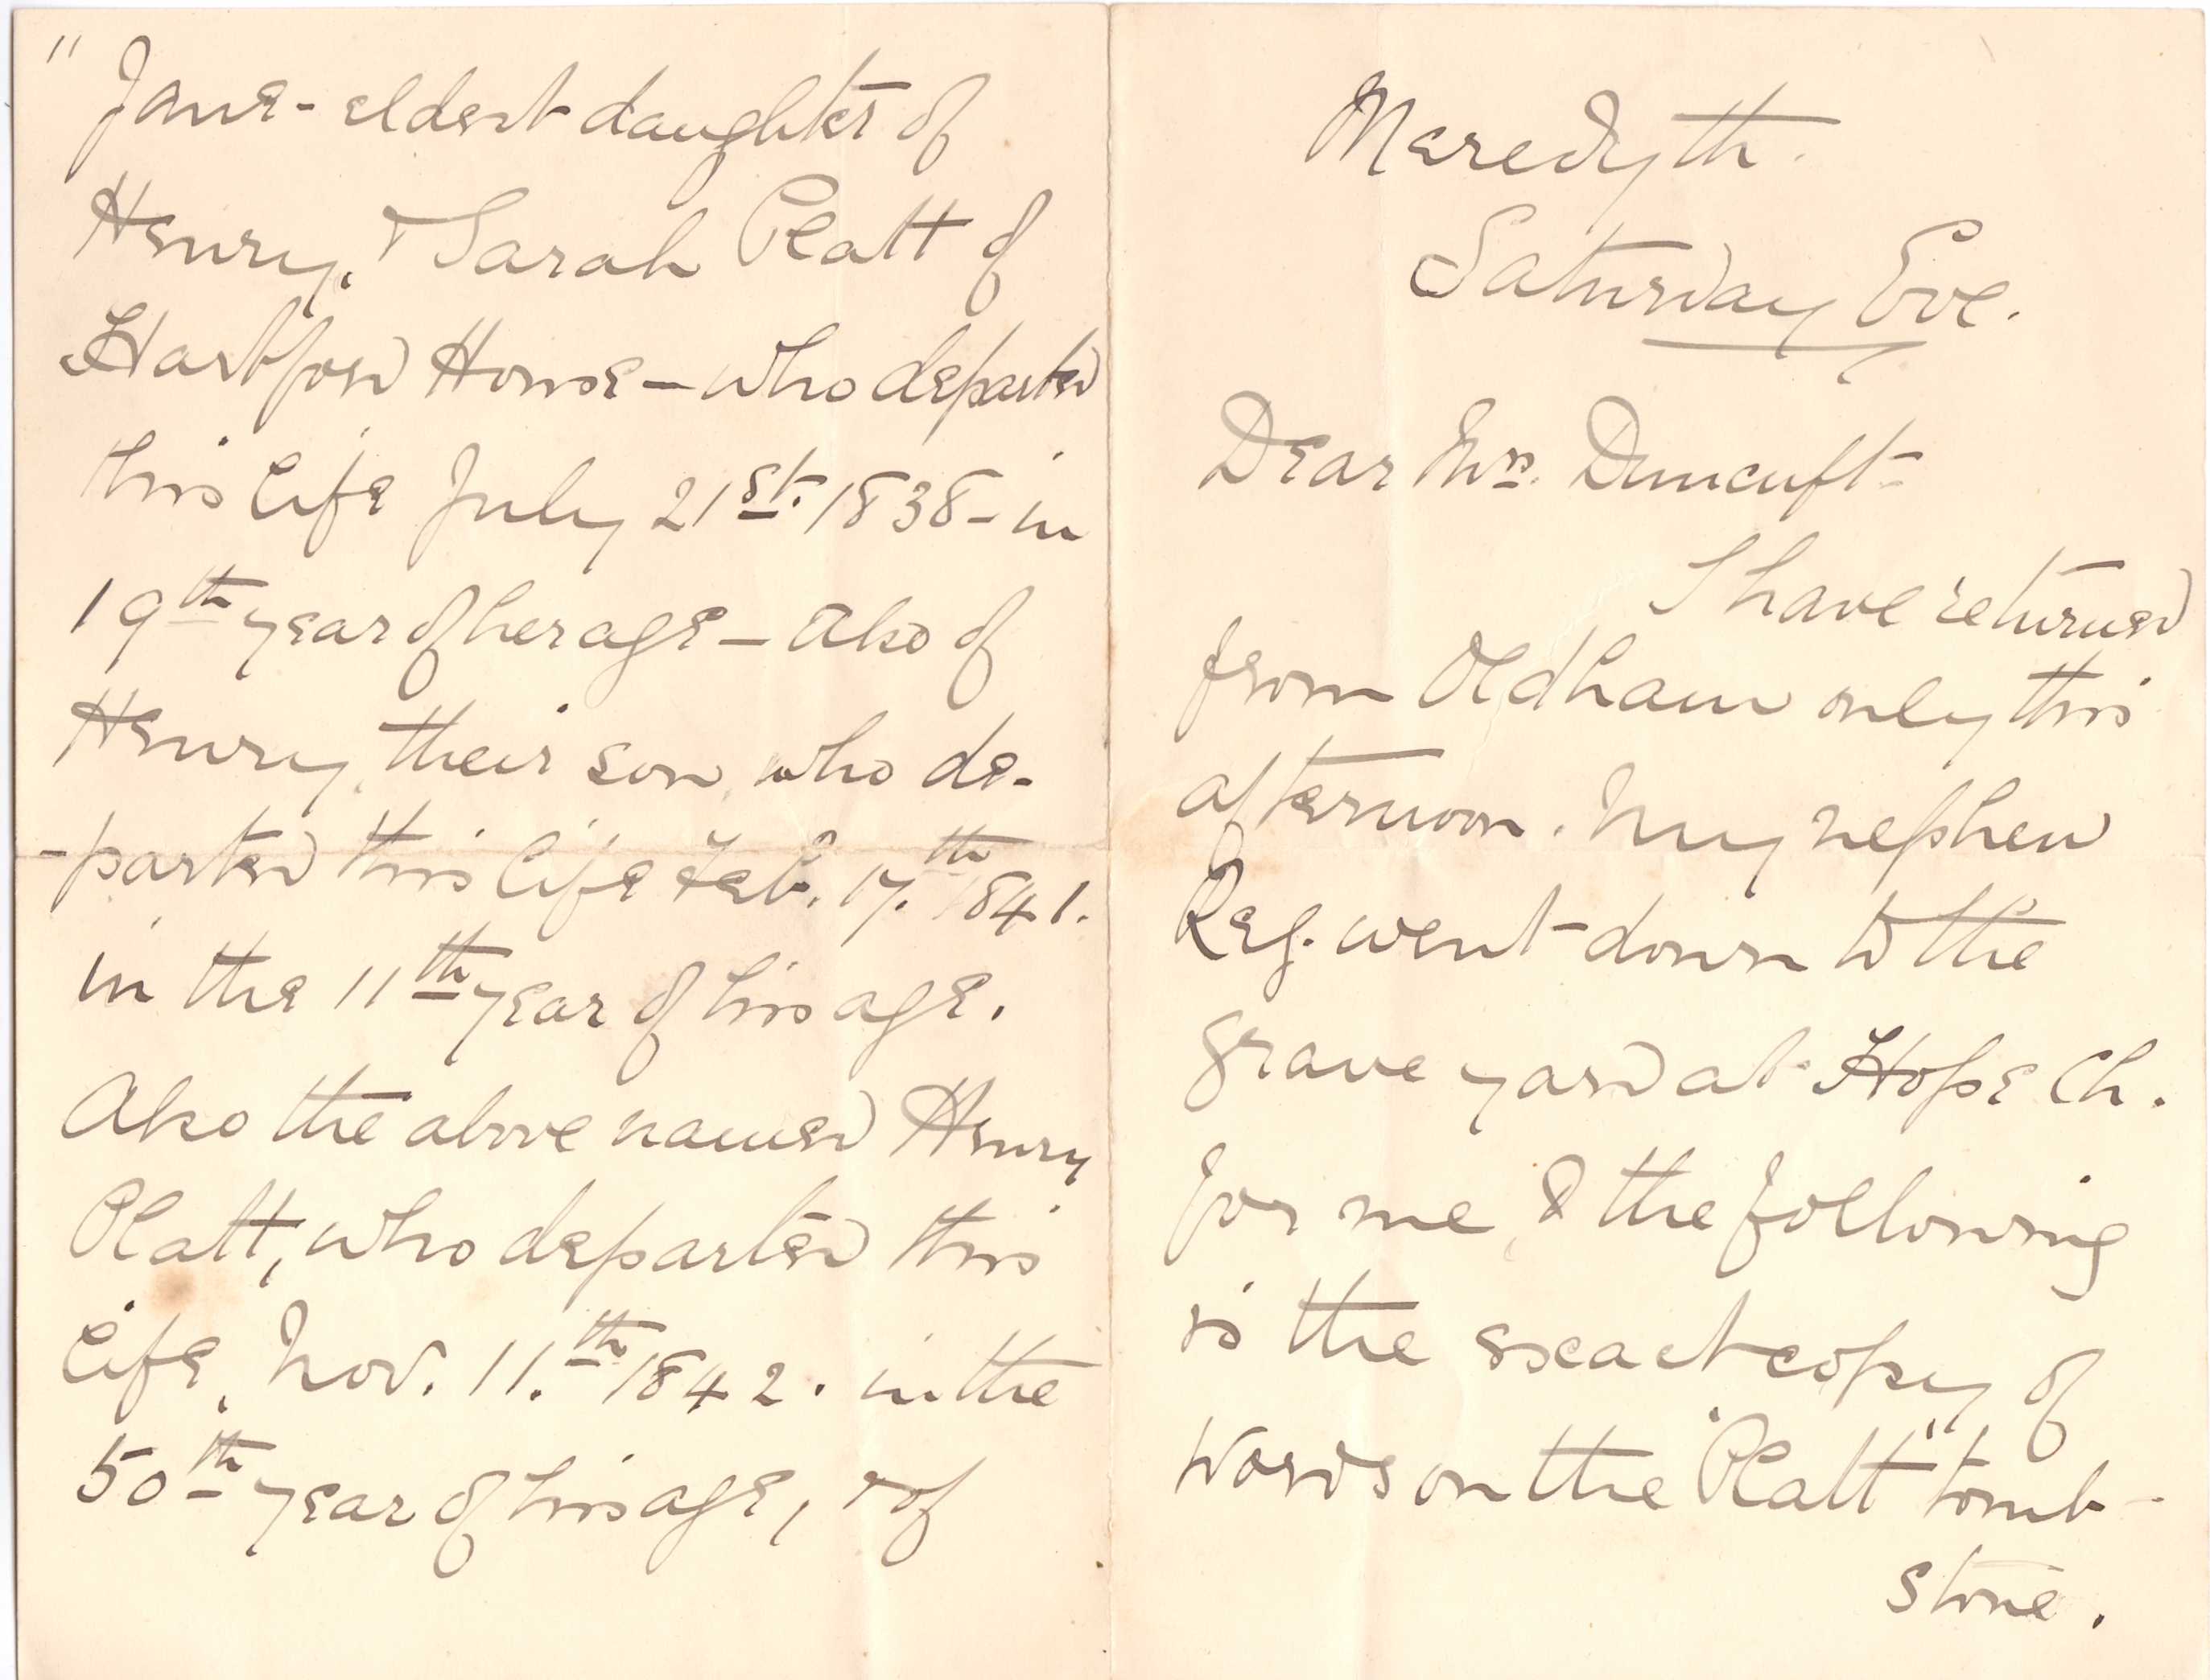 Meredyth.
Saturday Eve.
Dear Mrs. Duncuft-
I have returned
from Oldham only this
afternoon. My nephew
Reg. went down to the
grave yard at Hope Ch.
for me, & the following
is the exact copy of
words on the "Platt" tomb-
stone.
" Jane - eldest daughter of
Henry, & Sarah Platt of
Hartford House - who departed
this life July 21st. 1838 - in
19th year of her age - Also of
Henry, their son, who de-
-parted this life Feb. 17.th 1841.
in the 11th year of his age.
Also the above named Henry
Platt, who departed this
life, Nov. 11.th 1842. in the
50th year of his age, & of